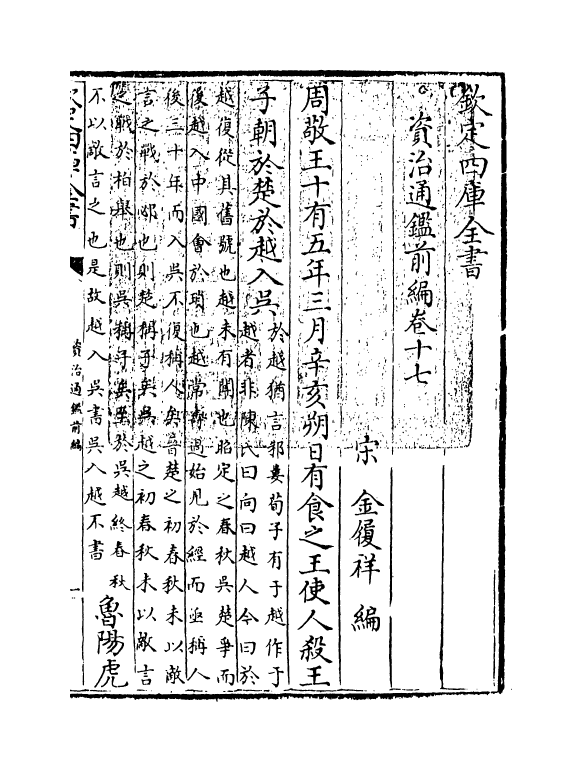 欽定四庫全書
資治通鑑前編卷十七
宋 金履祥 編
周敬王十有五年三月辛亥朔日有食之王使人殺王
子朝於楚於越入吳
於越猶言邾婁荀子有于越作于
越者非陳氏曰向曰越人今曰於
越復從其舊號也越未有聞也昭定之春秋吳楚爭而
後越入中國會於瑣也越常壽過始見於經而亟稱人
後三十年而入吳不復稱人矣晉楚之初春秋未以敵
言之戰於邲也則楚稱子矣吳越之初春秋未以敵言
之戰於柏舉也則吳稱子矣至於吳越終春秋
不以敵言之也是故越入吳書吳入越不書
魯陽虎
資治通鑑前編
一